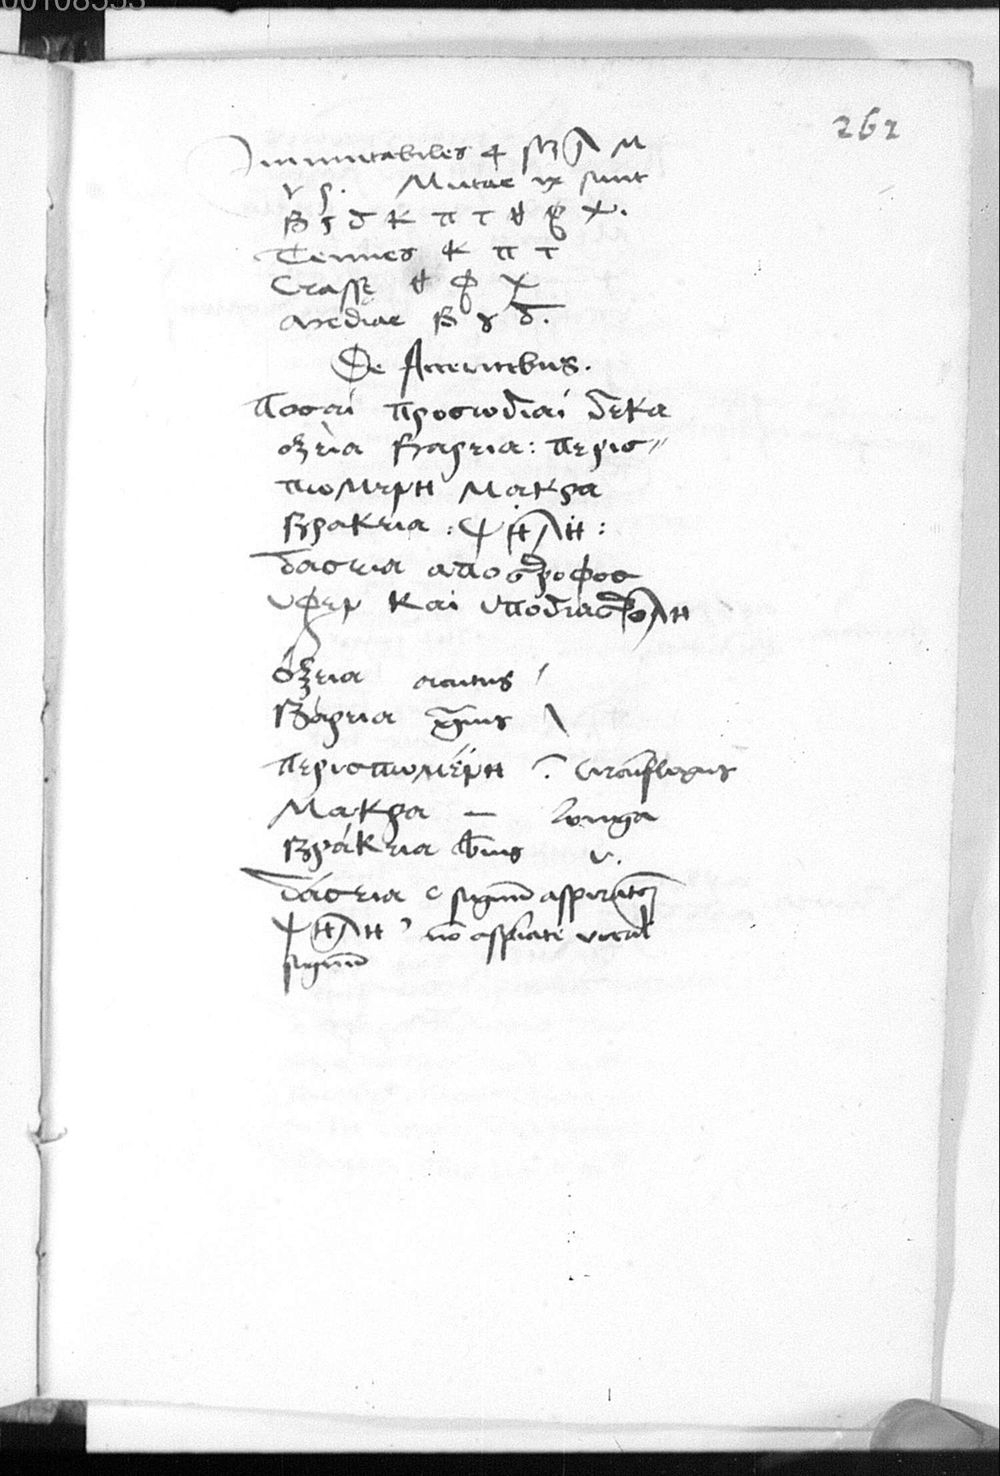 00108553
262
Immutabiles 4 λ μ
ν ρ. Mutae ix sunt
β γ δ κ π τ θ φ χ.
Tenues κ π τ
Crassę θ φ χ
Mediae β γ δ.
De Accentibus.
ποσαί προσωδιαί δεκα
οξεὶα βαρεια: περισ″
πωμενη μακρα
βρακεια: ψηλη:
δασεια αποστροφος
υφεν και υποδιαστολη
όξεια acutus ´
βάρεια grauis \
περισπωμένη ⁀ circumflexus
μακρα — longa
βράκεια breuis υ.
δάσεια c signum aspirationis
ψηλη ’ non aspirate vocalis
signum